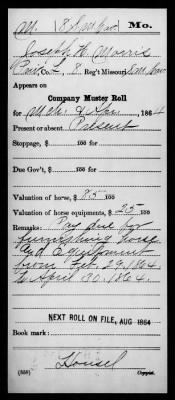 M. 8 S M Cav. Mo.
Joseph H. Morris
Pvt., Co. L, 8 Reg't Missouri S. M. Cav.
Appears on
Company Muster Roll
for Mch. & Apr., 1864
Present or absent Present
Stoppage, $ 100
Due Gov't, $ 100
Valuation of horse, $ 85 100
Valuation of horse equipments, $ 25 100
Remarks: Pay due for
furnishing horse
and Equipment
from Feb. 29, 1864
to April 30, 1864.
NEXT ROLL ON FILE, AUG 1864
Book mark:
(858) Copyist.